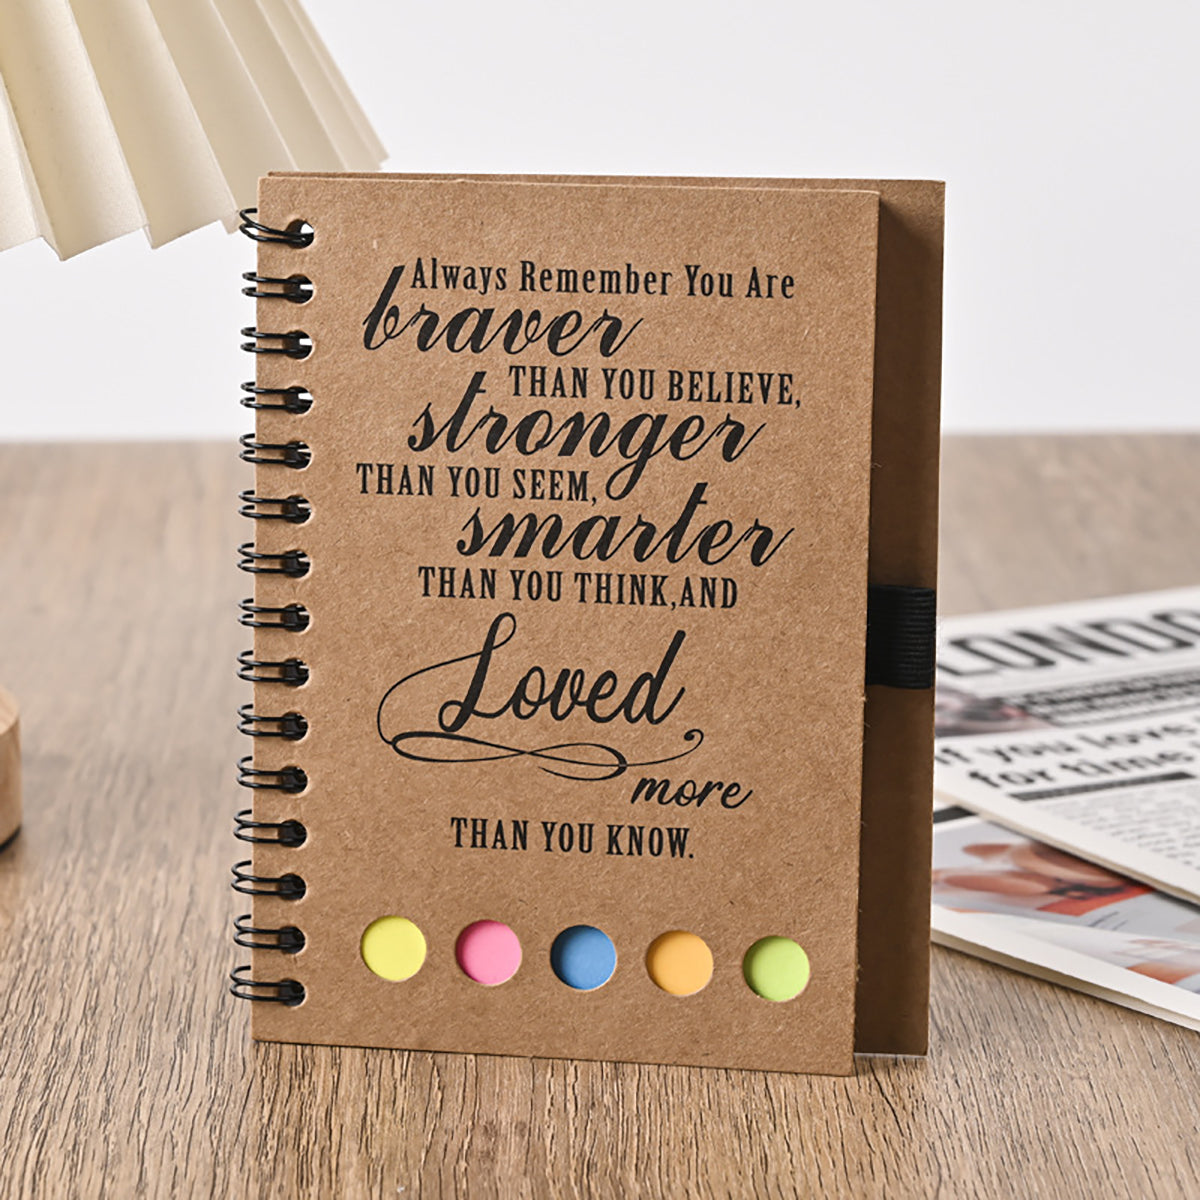 Always Remember You Are
braver
THAN YOU BELIEVE,
stronger
THAN YOU SEEM,
smarter
THAN YOU THINK,AND
Loved
more
THAN YOU KNOW.
If you love
for time